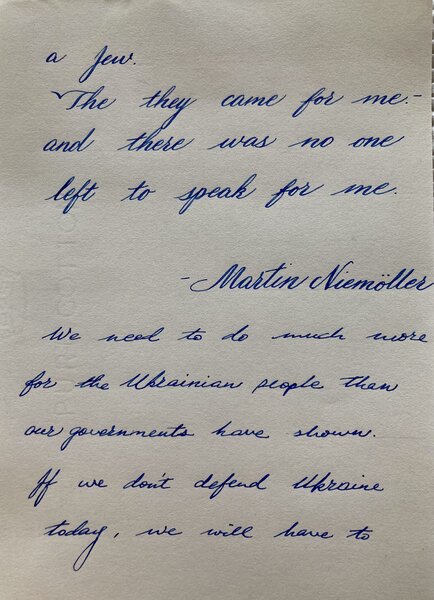 a Jew.
The they came for me.-
and there was no one
left to speak for me.
- Martin Niemöller
We need to do much more
for the Ukrainian people than
our governments have shown.
If we don't defend Ukraine
today, we will have to